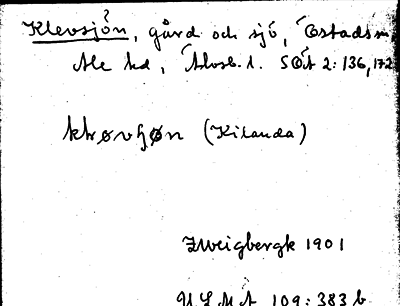 Klevsjön, gård och sjö, Östads
Ale hd, Älvsb. l. SOÄ 2: 136, 172
(Kilanda)
Zweigbergk 1901
ULMA 109: 383 b